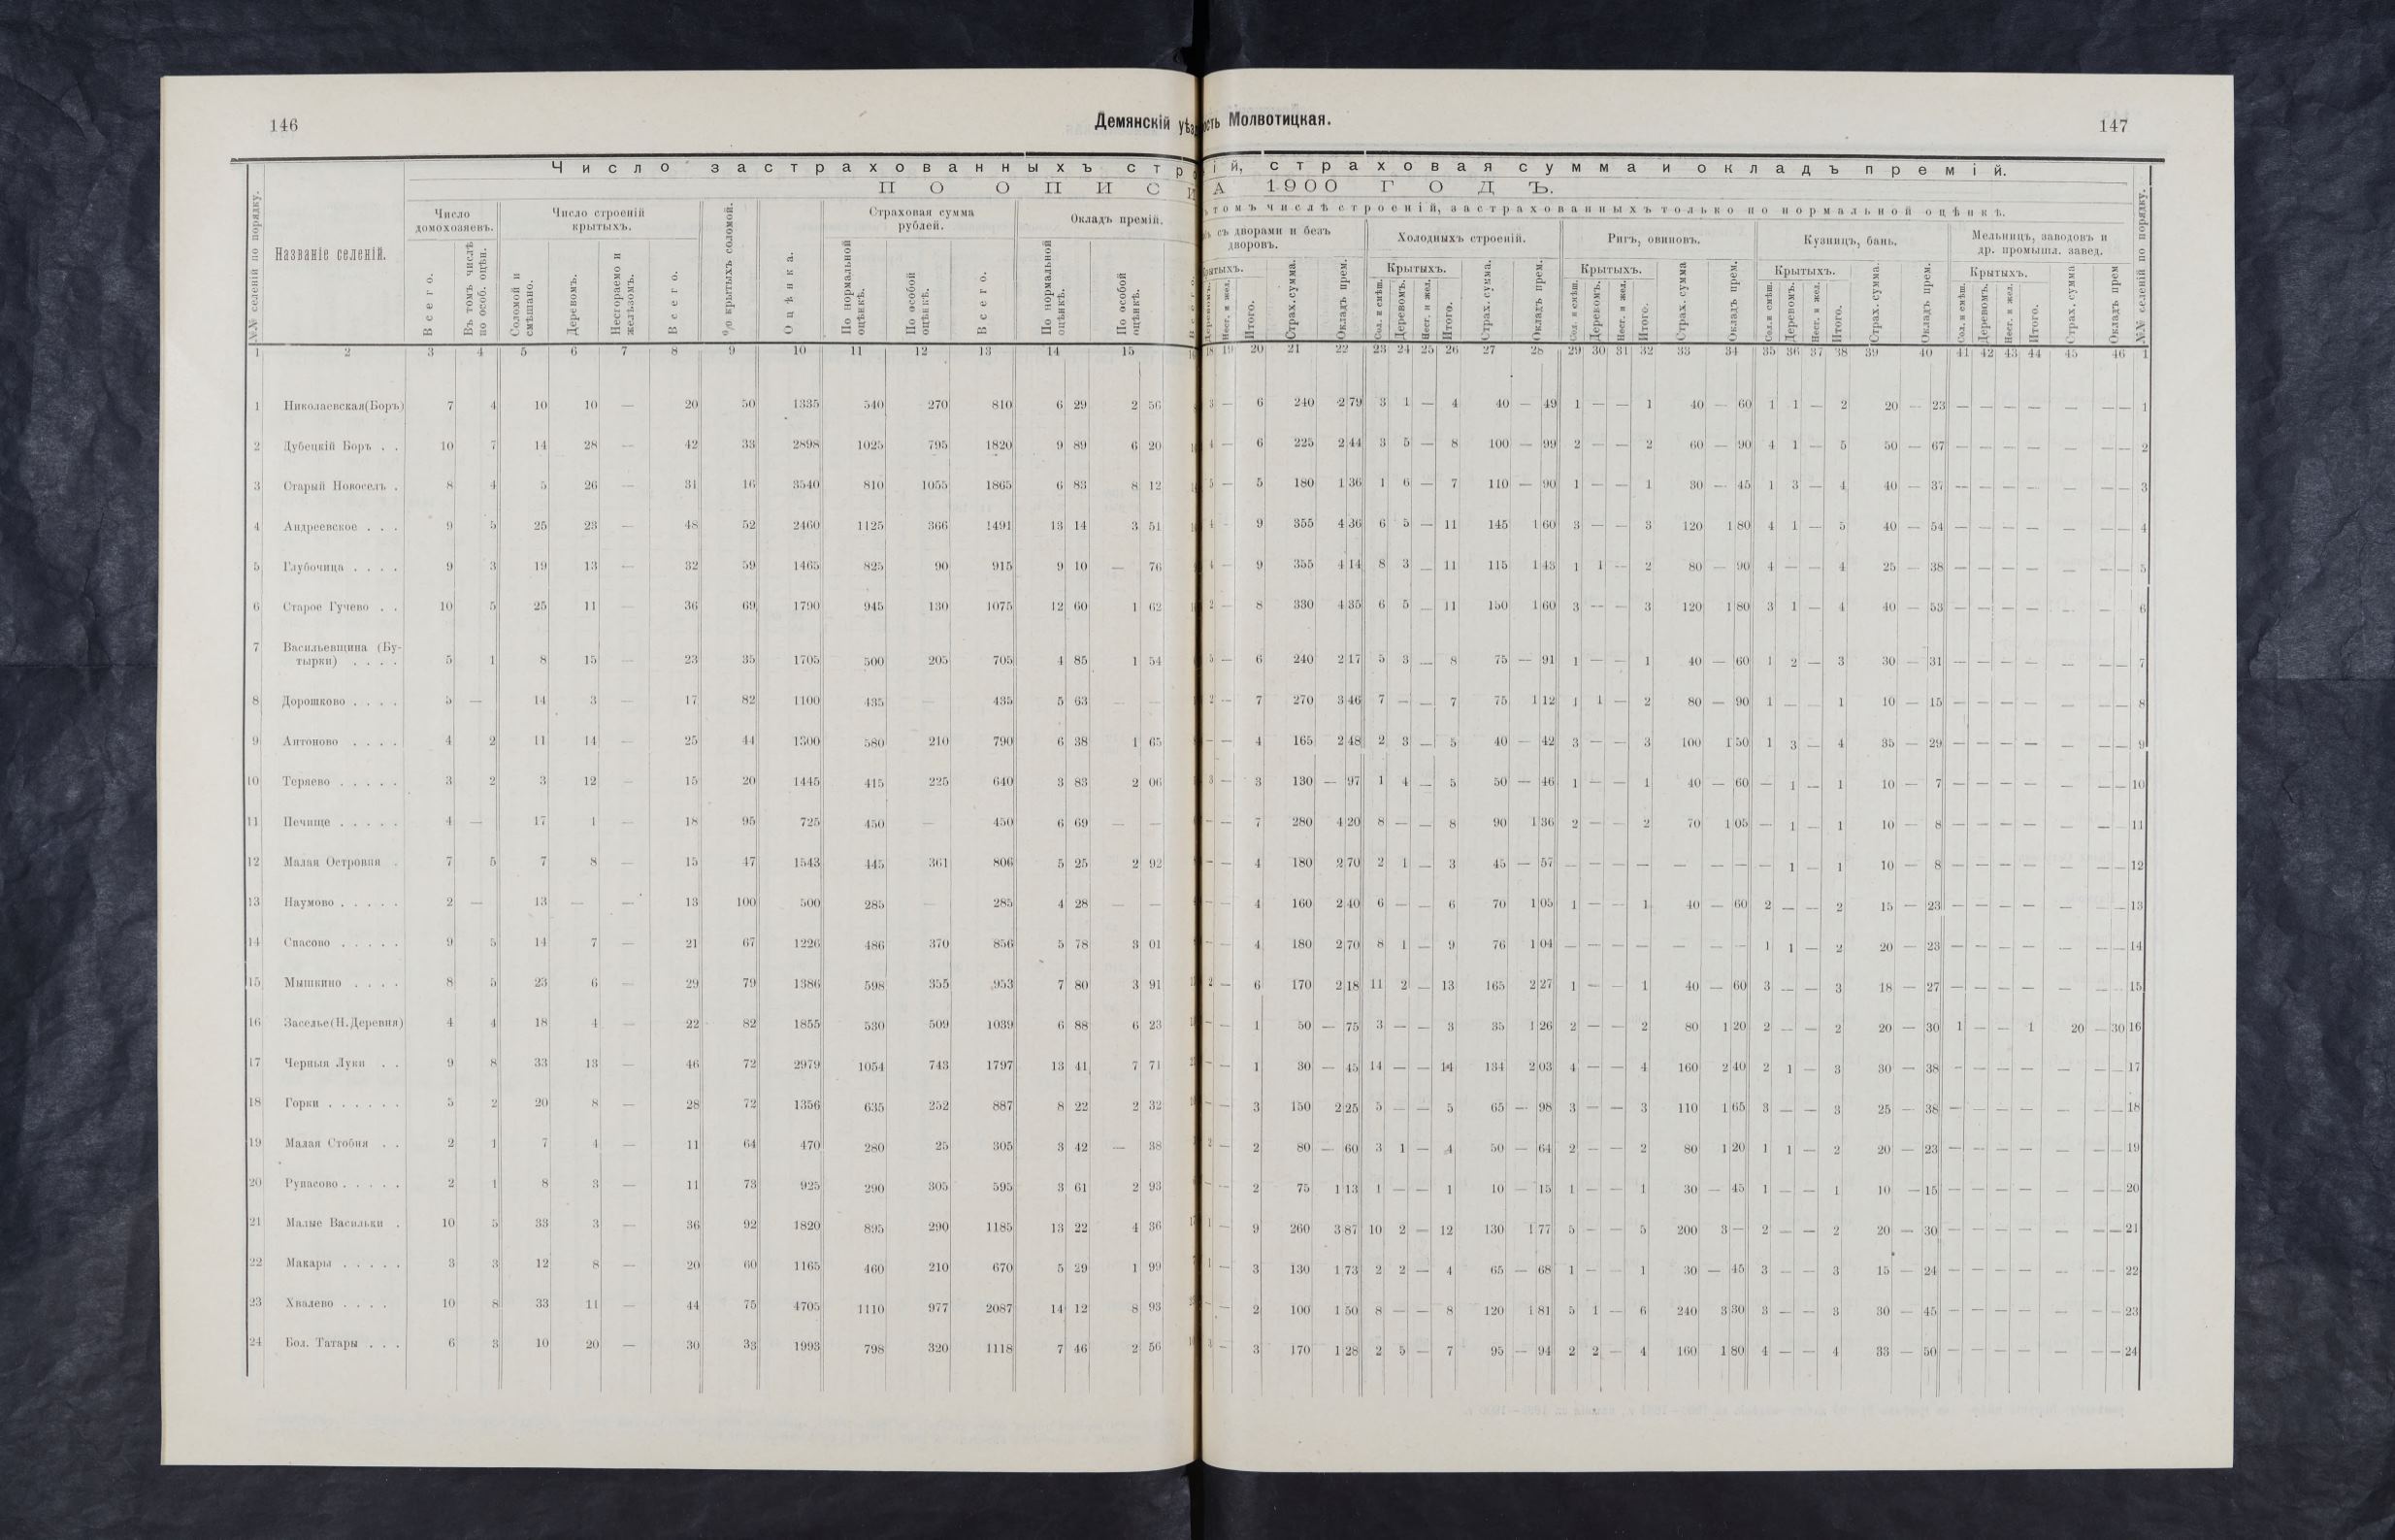 146
Демянскій уѣз
ость Молвотицкая.
147
Число застрахованныхъ стр
ій, страховая сумма и окладъ премій.
ПО ОПИС
А 1900 ГОДЪ.
томъ числѣ строеній, застрахованныхъ только по нормальной оцѣнкѣ.
№№ селеній по порядку.
Названіе селеній.
Число домохозяевъ.
Всего.
Въ томъ числѣ по особ. оцѣн.
Число строеній крытыхъ.
Соломой и смѣшано.
Деревомъ.
Несгораемо и желѣзомъ.
Всего.
% крытыхъ соломой.
Оцѣнка.
Страховая сумма рублей.
По нормальной оцѣнкѣ.
По особой оцѣнкѣ.
Всего.
Окладъ премій.
По нормальной оцѣнкѣ.
По особой оцѣнкѣ.
съ дворами и безъ дворовъ.
Крытыхъ.
Деревомъ.
Несг. и жел.
Итого.
Страх. сумма.
Окладъ прем.
Холодныхъ строеній.
Крытыхъ.
Сол. и смѣш.
Деревомъ.
Несг. и жел.
Итого.
Страх. сумма.
Окладъ прем.
Ригъ, овиновъ.
Крытыхъ.
Сол. и смѣш.
Деревомъ.
Несг. и жел.
Итого.
Страх. сумма
Окладъ прем.
Кузницъ, бань.
Крытыхъ.
Сол. и смѣш.
Деревомъ.
Несг. и жел.
Итого.
Страх. сумма.
Окладъ прем.
Мельницъ, заводовъ и др. промышл. завед.
Крытыхъ.
Сол. и смѣш.
Деревомъ.
Несг. и жел.
Итого.
Страх. сумма
Окладъ прем
№№ селеній по порядку.
1 2 3 4 5 6 7 8 9 10 11 12 13 14 15 18 19 20 21 22 23 24 25 26 27 28 29 30 31 32 33 34 35 36 37 38 39 40 41 42 43 44 45 46 1
1 Николаевская(Боръ) 7 4 10 10 — 20 50 1335 540 270 810 6 29 2 56 3 — 6 240 2 79 3 1 — 4 40 — 49 1 — — 1 40 — 60 1 1 — 2 20 — 23 — — — — — — — 1
2 Дубецкій Боръ . . 10 7 14 28 — 42 33 2898 1025 795 1820 9 89 6 20 4 — 6 225 2 44 3 5 — 8 100 — 99 2 — — 2 60 — 90 4 1 — 5 50 — 67 — — — — — — — 2
3 Старый Новосель . 8 4 5 26 — 31 16 3540 810 1055 1865 6 83 8 12 5 — 5 180 1 36 1 6 — 7 110 — 90 1 — — 1 30 — 45 1 3 — 4 40 — 37 — — — — — — — 3
4 Андреевское . . . 9 5 25 23 — 48 52 2460 1125 366 1491 13 14 3 51 4 - 9 355 4 36 6 5 — 11 145 1 60 3 — — 3 120 1 80 4 1 — 5 40 — 54 — — — — — — — 4
5 Глубочица . . . . 9 3 19 13 — 32 59 1465 825 90 915 9 10 — 76 4 — 9 355 4 14 8 3 — 11 115 1 43 1 1 — 2 80 — 90 4 — — 4 25 — 38 — — — — — — — 5
6 Старое Гучево . . 10 5 25 11 — 36 69 1790 945 130 1075 12 60 1 62 2 — 8 330 4 35 6 5 — 11 150 1 60 3 — — 3 120 1 80 3 1 — 4 40 — 53 — — — — — — 6
7 Васильевщина (Бу-
тырки) . . . . 5 1 8 15 — 23 35 1705 500 205 705 4 85 1 54 5 — 6 240 2 17 5 3 — 8 75 — 91 1 — — 1 40 — 60 1 2 — 3 30 — 31 — — — — — — — 7
8 Дорошково . . . . 5 — 14 3 — 17 82 1100 435 — 435 5 63 — — 2 — 7 270 3 46 7 — — 7 75 1 12 1 1 — 2 80 — 90 1 — — 1 10 — 15 — — — — — — — 8
9 Антоново . . . . 4 2 11 14 — 25 44 1300 580 210 790 6 38 1 65 — — 4 165 2 48 2 3 — 5 40 — 42 3 — — 3 100 1 50 1 3 — 4 35 — 29 — — — — — — — 9
10 Теряево . . . . . 3 2 3 12 — 15 20 1445 415 225 640 3 83 2 06 3 — 3 130 — 97 1 4 — 5 50 — 46 1 — — 1 40 — 60 — 1 — 1 10 — 7 — — — — — — — 10
11 Печище . . . . . 4 — 17 1 — 18 95 725 450 — 450 6 69 — — — — 7 280 4 20 8 — — 8 90 1 36 2 — — 2 70 1 05 — 1 — 1 10 — 8 — — — — — — — 11
12 Малая Островня . 7 5 7 8 — 15 47 1543 445 361 806 5 25 2 92 — — 4 180 2 70 2 1 — 3 45 — 57 — — — — — — — — 1 — 1 10 — 8 — — — — — — — 12
13 Наумово . . . . . 2 — 13 — — 13 100 500 285 — 285 4 28 — — — — 4 160 2 40 6 — — 6 70 1 05 1 — — 1 40 — 60 2 — — 2 15 — 23 — — — — — — — 13
14 Спасово . . . . . 9 5 14 7 — 21 67 1226 486 370 856 5 78 3 01 — — 4 180 2 70 8 1 — 9 76 1 04 — — — — — — — 1 1 — 2 20 — 23 — — — — — — — 14
15 Мышкино . . . . 8 5 23 6 — 29 79 1386 598 355 953 7 80 3 91 2 — 6 170 2 18 11 2 — 13 165 2 27 1 — — 1 40 — 60 3 — — 3 18 — 27 — — — — — — — 15
16 Заселье(Н.Деревня) 4 4 18 4 — 22 82 1855 530 509 1039 6 88 6 23 — — 1 50 — 75 3 — — 3 35 1 26 2 — — 2 80 1 20 2 — — 2 20 — 30 1 — — 1 20 — 30 16
17 Черныя Луки . . 9 8 33 13 — 46 72 2979 1054 743 1797 13 41 7 71 — — 1 30 — 45 14 — — 14 134 2 03 4 — — 4 160 2 40 2 1 — 3 30 — 38 — — — — — — — 17
18 Горки . . . . . . 5 2 20 8 — 28 72 1356 635 252 887 8 22 2 32 — — 3 150 2 25 5 — — 5 65 — 98 3 — — 3 110 1 65 3 — — 3 25 — 38 — — — — — — — 18
19 Малая Стобня . . 2 1 7 4 — 11 64 470 280 25 305 3 42 — 38 2 — 2 80 — 60 3 1 — 4 50 — 64 2 — — 2 80 1 20 1 1 — 2 20 — 23 — — — — — — — 19
20 Рунасово . . . . . 2 1 8 3 — 11 73 925 290 305 595 3 61 2 93 — — 2 75 1 13 1 — — 1 10 — 15 1 — — 1 30 — 45 1 — — 1 10 — 15 — — — — — — — 20
21 Малые Васильки . 10 5 33 3 — 36 92 1820 895 290 1185 13 22 4 36 1 — 9 260 3 87 10 2 — 12 130 1 77 5 — — 5 200 3 — 2 — — 2 20 — 30 — — — — — — — 21
22 Макары . . . . . 3 3 12 8 — 20 60 1165 460 210 670 5 29 1 99 1 — 3 130 1 73 2 2 — 4 65 — 68 1 — — 1 30 — 45 3 — — 3 15 — 24 — — — — — — — 22
23 Хвалево . . . . 10 8 33 11 — 44 75 4705 1110 977 2087 14 12 8 93 — — 2 100 1 50 8 — — 8 120 1 81 5 1 — 6 240 3 30 3 — — 3 30 — 45 — — — — — — — 23
24 Бол. Татары . . . 6 3 10 20 — 30 33 1993 798 320 1118 7 46 2 56 3 — 3 170 1 28 2 5 — 7 95 — 94 2 2 — 4 160 1 80 4 — — 4 33 — 50 — — — — — — — 24